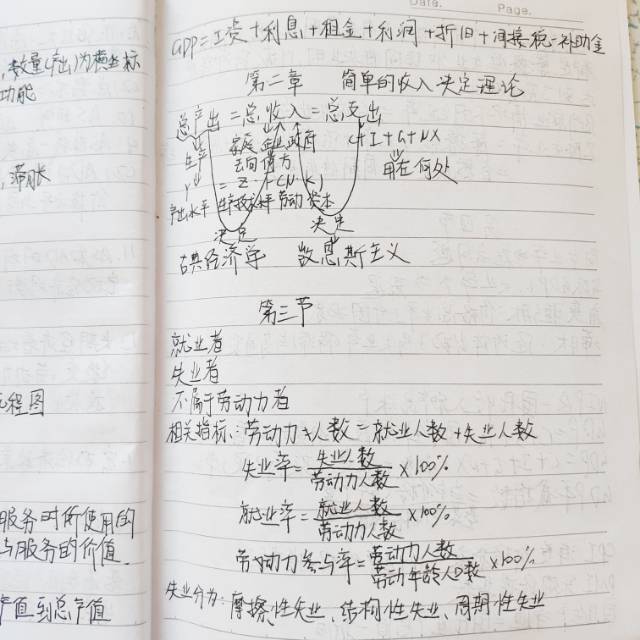 Date.
Page.
,数量(产出)为横坐标
功能
,滞胀
流程图
服务时所使用的
与服务的价值.
产值到总产值
GDP=工资+利息+租金+利润+折旧+间接税-补助金
第二章 简单的收入决定理论
总产出=总收入=总支出
生产 家庭 企业 政府 C+I+G+NX
去向债方 用在何处
Y = Z·F(N·K)
产出水平 生产技术水平 劳动 资本
决定 决定
古典经济学 凯恩斯主义
第三节
就业者
失业者
不属于劳动力者
相关指标:劳动力人数=就业人数+失业人数
失业率=失业人数/劳动力人数×100%
就业率=就业人数/劳动力人数×100%
劳动力参与率=劳动力人数/劳动年龄人口数×100%
失业分为:摩擦性失业、结构性失业、周期性失业